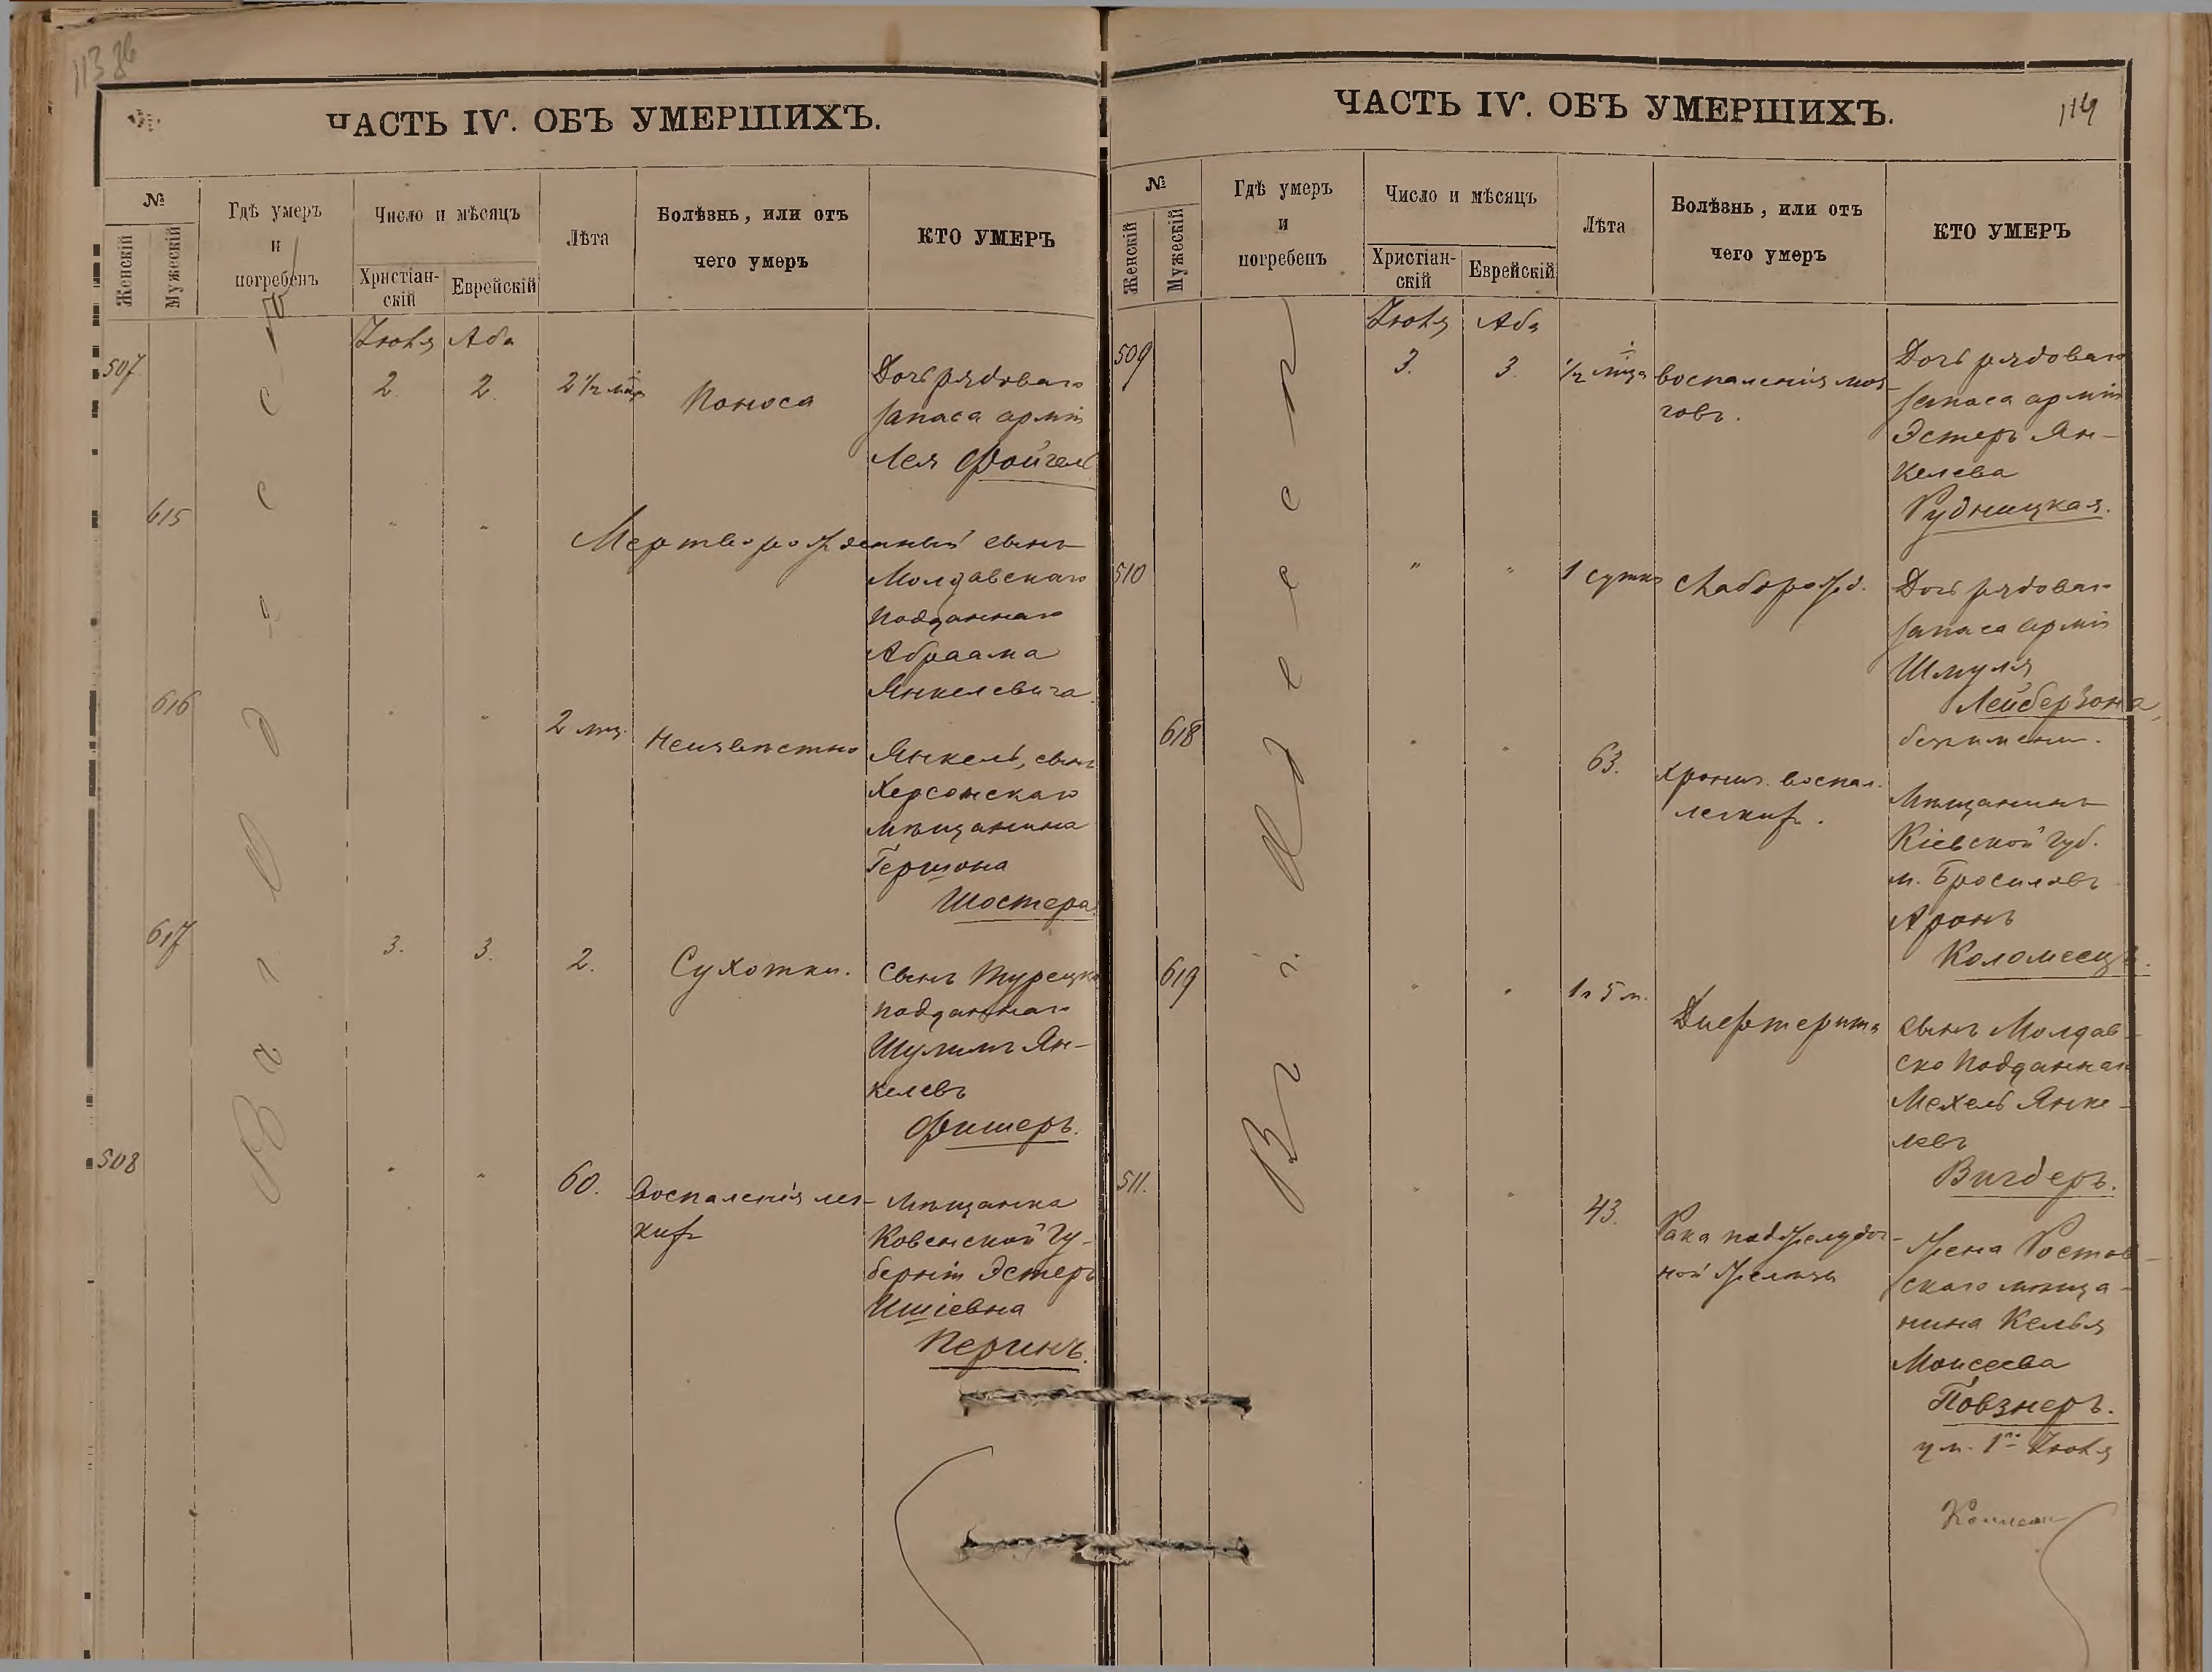 113 об
ЧАСТЬ IV. ОБЪ УМЕРШИХЪ.
№
Женскій
Мужескій
Гдѣ умеръ
и
погребенъ
Число и мѣсяцъ
Христіан-
скій
Еврейскій
Лѣта
Болѣзнь, или отъ
чего умеръ
КТО УМЕРЪ
Въ г. Одессѣ
Іюля Аба
507 2. 2. 2 1/2 мца Поноса Дочь рядоваго
запаса арміи
Лея Фойгель
615 " " Мертворожденный сынъ
Молдавскаго
подданнаго
Абраама
Янкелевича
616 " " 2 мц. Неизвѣстно Янкель, сынъ
Херсонскаго
мѣщанина
Гершона
Шостера.
617 3. 3. 2. Сухотки. Сынъ Турецко
подданнаго
Шулимъ Ян-
келевъ
Фишеръ.
508 " " 60. Воспаленія лег-
кихъ
Мѣщанка
Ковенской Гу-
берніи Эстеръ
Ишіевна
Перинъ.
ЧАСТЬ IV. ОБЪ УМЕРШИХЪ.
114
№
Женскій
Мужескій
Гдѣ умеръ
и
погребенъ
Число и мѣсяцъ
Христіан-
скій
Еврейскій
Лѣта
Болѣзнь, или отъ
чего умеръ
КТО УМЕРЪ
Въ г. Одессѣ
Іюля Аба
509 3. 3. 1/2 мца воспаленія моз-
говъ.
Дочь рядоваго
запаса арміи
Эстеръ Ян-
келева
Рудницкая.
510 " " 1 сутки слаборожд. Дочь рядоваго
запаса арміи
Шмуля
Лейберзона,
безъ имени.
618 " " 63. хронич. воспал.
легкихъ.
Мѣщанинъ
Кіевской губ.
м. Бросиловъ
Аронъ
Коломеецъ.
619 " " 1 г 5 м. Дифтерита сынъ Молдав-
ско подданнаго
Мехель Янке-
левъ
Вигдеръ.
511. " " 43. Рака поджелудоч-
ной железы
Жена Ростов-
скаго мѣща-
нина Кельля
Моисеева
Повзнеръ.
ум. 1го Іюля